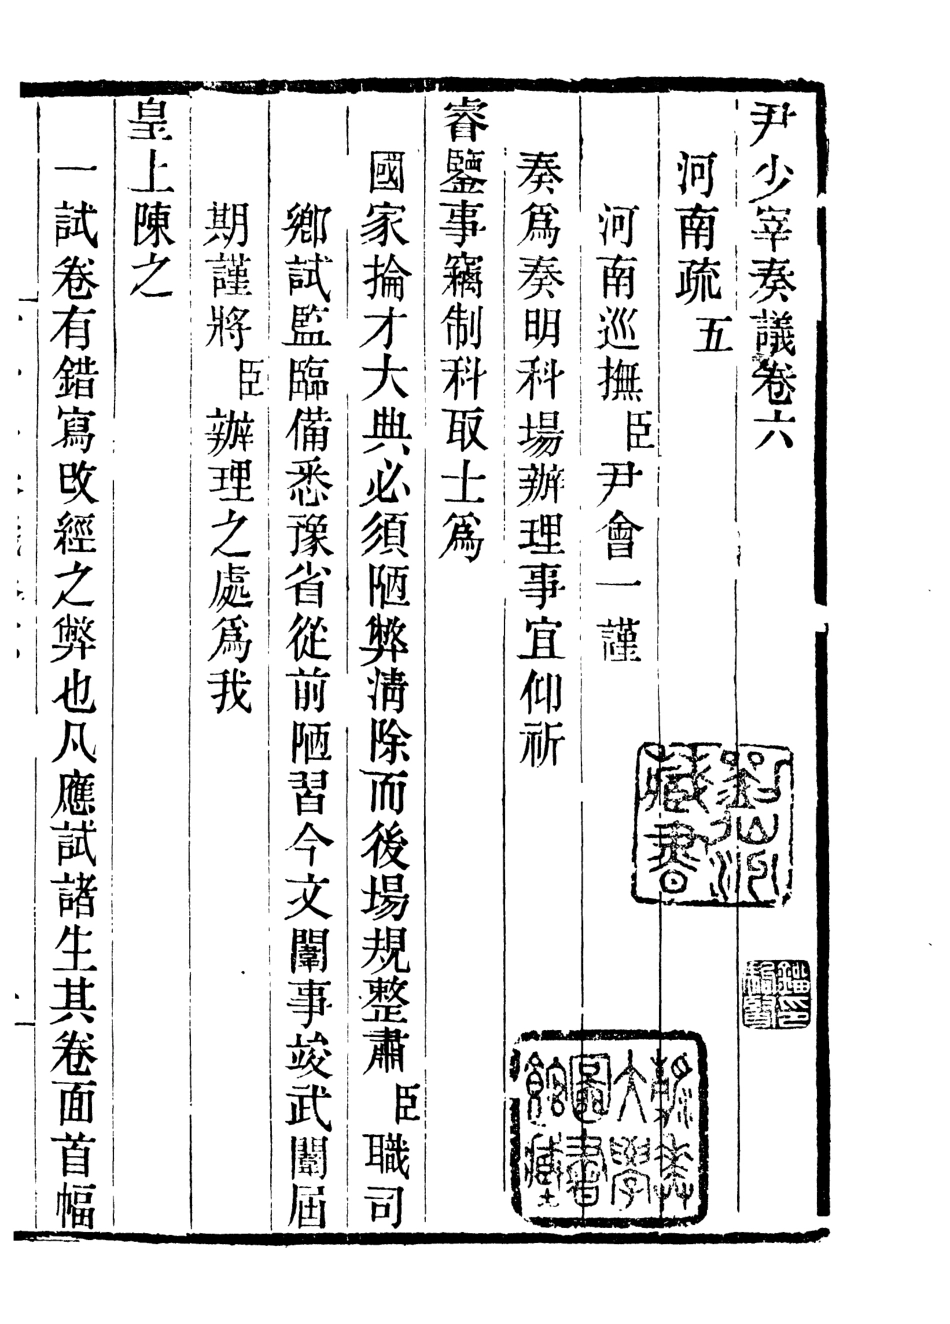 尹少宰奏議卷六
河南疏五
河南巡撫臣尹會一謹
奏爲奏明科場辦理事宜仰祈
睿鑒事竊制科取士爲
國家掄才大典必須陋弊清除而後場規整肅臣職司
鄉試監臨備悉豫省從前陋習今文闈事竣武闈屆
期謹將臣辦理之處爲我
皇上陳之
一試卷有錯寫改經之弊也凡應試諸生其卷面首幅
藏書
燕京大學圖書館藏